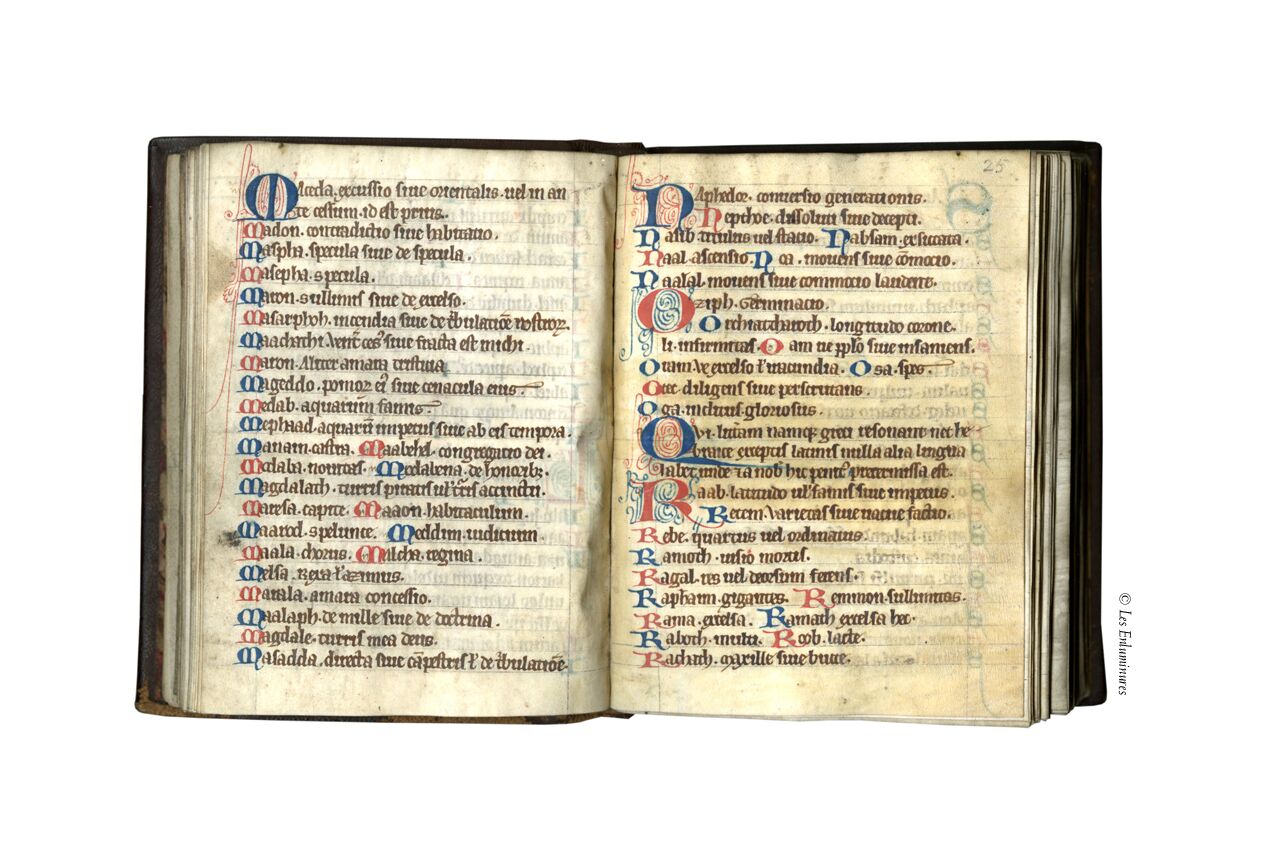 Maceda. excussio siue orientalis. uel in an
te cessum. id est prius.
Madon. contradictio siue habitatio.
Maspha. specula siue de specula.
Masepha. specula.
Maron. sullimis siue de excelso.
Masarphoh. incendia siue de tribulatiōe nostror.
Maachathi. siue fracta est michi.
Maron. amara tristitia
Mageddo. pomor siue cenacula eius.
Medab. aquarum famis.
Mephaad. aquarū impetus siue ab eis tempora.
Manaim. castra. Maabehel. congregatio dei.
Medaba. nouitas. Medalena. de honorib;
Magdalach. turris
Maresa. capite. Maaon. habitaculum.
Maarod. spelunce. Meddim. iudicium.
Maala. chorus. Milcha. regina.
Melsa.
Matala. amara concessio.
Maalaph. de mille siue de doctrina.
Magdale. turris mea deus.
Masadda. directa siue cāpestris ł de tribulatiōe.
25
Naphedor. conuersio generationis.
Nepthoe. dissolui siue decepti.
Nasib. titulus uel statio. Nabsam. exsiccata.
Naal. ascensio. Noa. mouens siue cōmotio.
Naalal. mouens siue commotio laudem.
Oziph. Germinatio.
Orchiatcharoth. longitudo corone.
li. infirmitas. Oam ne pplo siue insaniens.
Otam. excelso ł iracundia. Osa. spes.
Otec. diligens siue perscrutans.
Oga. inclitus gloriosus.
Qui. litām namq; greci resonant nec he
braice exceptis latinis nulla alia lingua
habet. unde ā nob hic penit' pretermissa est.
Raab. latitudo ul' famis siue impetus.
Recem. Varietas siue uacue factio.
Rebe. quartus uel ordinatus.
Ramoth. uisio mortis.
Ragal. res uel deorsum ferens.
Raphaim. gigantes. Remmon. sullimitas.
Rama. excelsa. Ramath excelsa hec.
Raboth. multi. Roob. late.
Rachath. maxille siue bucce.
© Les Enluminures